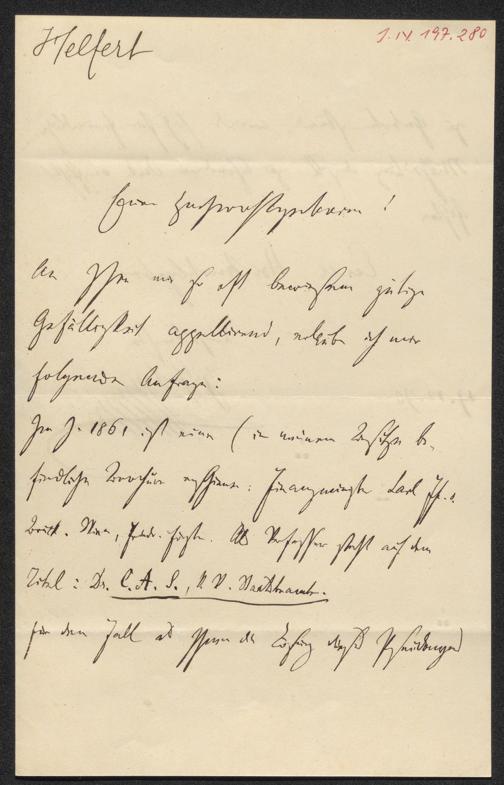 Helfert
J.N. 197.280
Euer Hochwohlgeboren!
An Ihre mir so oft bewiesene gütige
Gefälligkeit appellirend, erlaube ich mir
folgende Anfrage:
Im J. 1861 ist eine (in meinem Besitze be-
findliche Brochüre erschienen: Finanzminister Carl Fh. v.
Bruck. Wien, Als Verfasser steht auf dem
Titel: Dr. C. A. S., k. k. Staatsbeamter.
für den Fall als Ihnen die Lösung dieses Pseudonyms